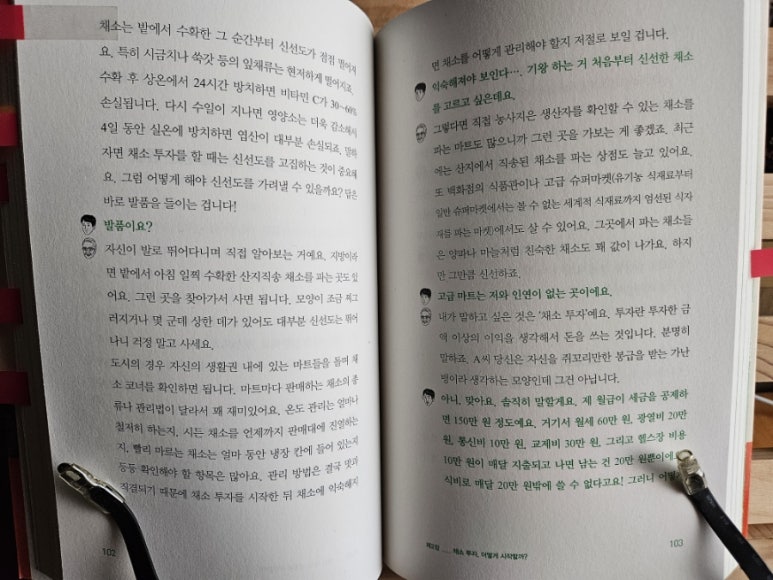 채소는 밭에서 수확한 그 순간부터 신선도가 점점 떨어져
요. 특히 시금치나 쑥갓 등의 잎채류는 현저하게 떨어지죠.
수확 후 상온에서 24시간 방치하면 비타민 C가 30~60%
손실됩니다. 다시 수일이 지나면 영양소는 더욱 감소해서
4일 동안 실온에 방치하면 엽산이 대부분 손실되죠. 말하
자면 채소 투자를 할 때는 신선도를 고집하는 것이 중요해
요. 그럼 어떻게 해야 신선도를 가려낼 수 있을까요? 답은
바로 발품을 들이는 겁니다!
발품이요?
자신이 발로 뛰어다니며 직접 알아보는 거예요. 지방이라
면 밭에서 아침 일찍 수확한 산지직송 채소를 파는 곳도 있
어요. 그런 곳을 찾아가서 사면 됩니다. 모양이 조금 찌그
러지거나 몇 군데 상한 데가 있어도 대부분 신선도는 뛰어
나니 걱정 말고 사세요.
도시의 경우 자신의 생활권 내에 있는 마트들을 돌며 채
소 코너를 확인하면 됩니다. 마트마다 판매하는 채소의 종
류나 관리법이 달라서 꽤 재미있어요. 온도 관리는 얼마나
철저히 하는지, 시든 채소를 언제까지 판매대에 진열하는
지, 빨리 마르는 채소는 얼마 동안 냉장 칸에 들어 있는지
등등 확인해야 할 항목은 많아요. 관리 방법은 결국 맛과
직결되기 때문에 채소 투자를 시작한 뒤 채소에 익숙해지
102
면 채소를 어떻게 관리해야 할지 저절로 보일 겁니다.
익숙해져야 보인다…. 기왕 하는 거 처음부터 신선한 채소
를 고르고 싶은데요.
그렇다면 직접 농사지은 생산자를 확인할 수 있는 채소를
파는 마트도 많으니까 그런 곳을 가보는 게 좋겠죠. 최근
에는 산지에서 직송된 채소를 파는 상점도 늘고 있어요.
또 백화점의 식품관이나 고급 슈퍼마켓(유기농 식재료부터
일반 슈퍼마켓에서는 볼 수 없는 세계적 식재료까지 엄선된 식자
재를 파는 마켓)에서도 살 수 있어요. 그곳에서 파는 채소들
은 양파나 마늘처럼 친숙한 채소도 꽤 값이 나가요. 하지
만 그만큼 신선하죠.
고급 마트는 저와 인연이 없는 곳이에요.
내가 말하고 싶은 것은 ‘채소 투자’예요. 투자란 투자한 금
액 이상의 이익을 생각해서 돈을 쓰는 것입니다. 분명히
말하죠. A씨 당신은 자신을 쥐꼬리만한 봉급을 받는 가난
뱅이라 생각하는 모양인데 그건 아닙니다.
아니, 맞아요. 솔직히 말할게요. 제 월급이 세금을 공제하
면 150만 원 정도예요. 거기서 월세 60만 원, 광열비 20만
원, 통신비 10만 원, 교제비 30만 원, 그리고 헬스장 비용
10만 원이 매달 지출되고 나면 남는 건 20만 원뿐이에요.
식비로 매달 20만 원밖에 쓸 수 없다고요! 그러니
제2강 채소 투자, 어떻게 시작할까?
103